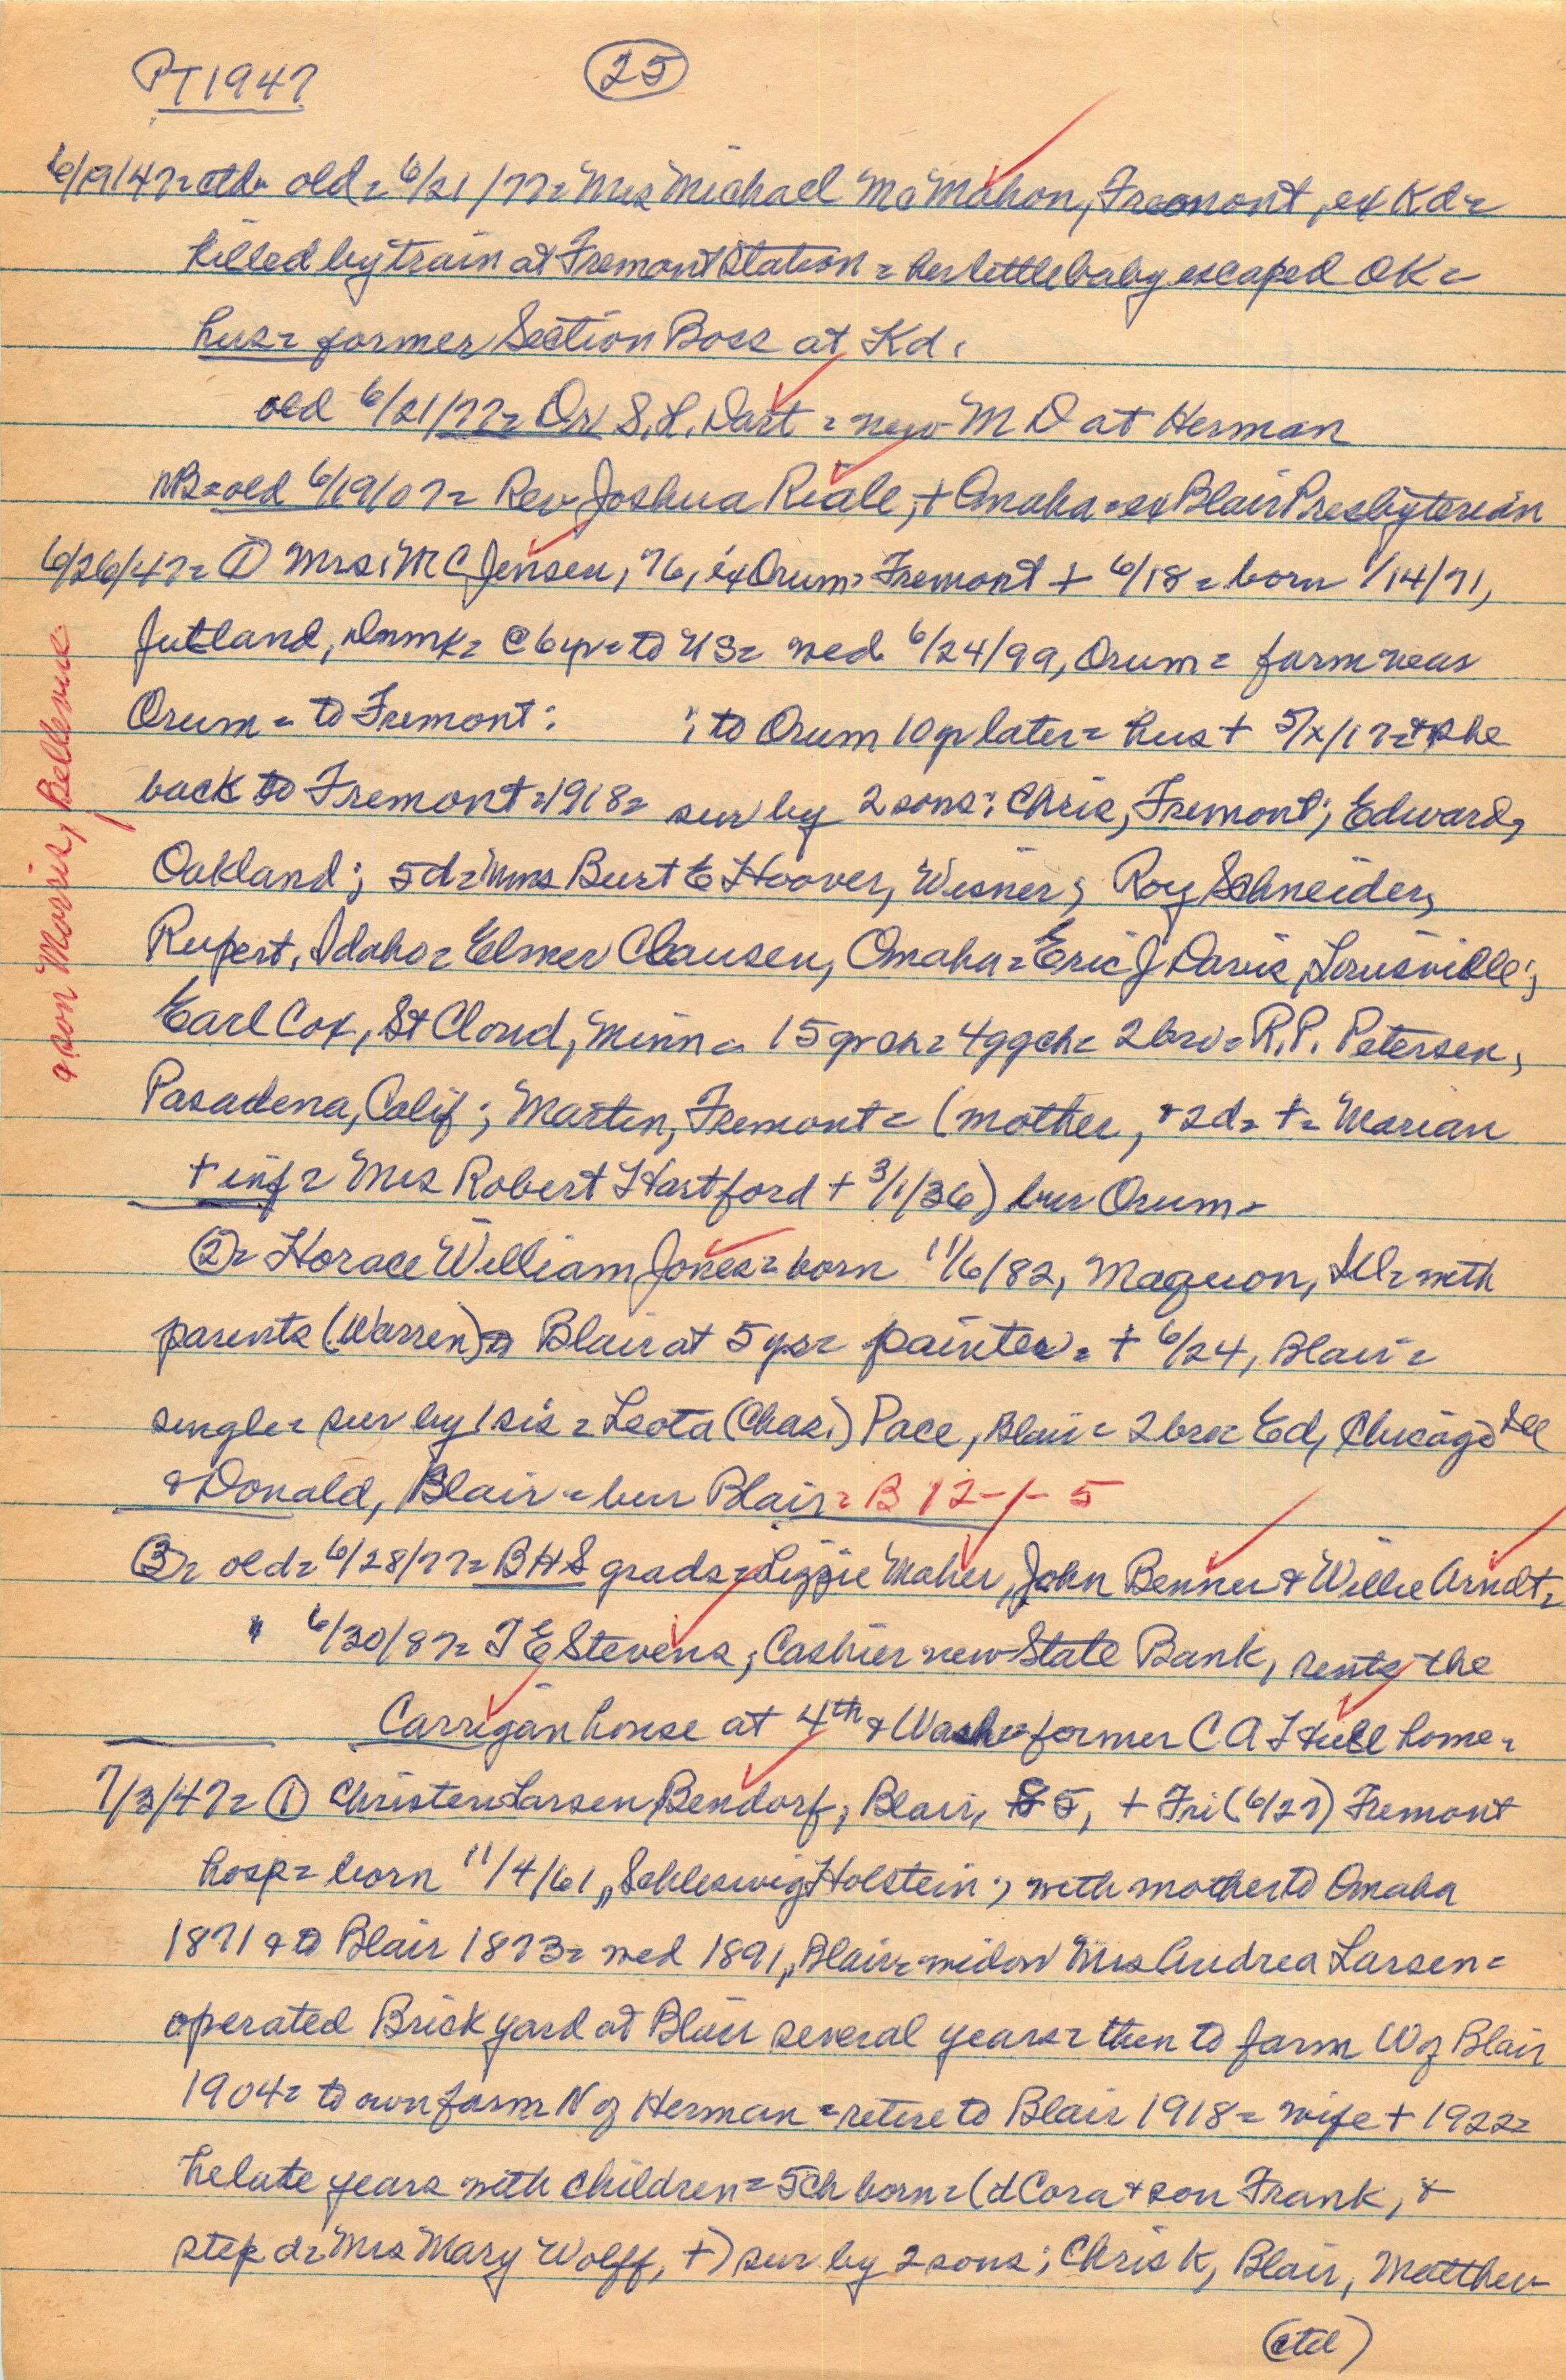 PT 1947
25
6/19/47= ctd= old= 6/21/77= Mrs Michael McMahon, Fremont, ex Kd=
killed by train at Fremont Station = her little baby escaped OK =
hus= former Section Boss at Kd.
old 6/21/77= Dr S.H. Dart = new MD at Herman
NB= old 6/19/07= Rev Joshua Riale, + Omaha = ex Blair Presbyterian
6/26/47= ① Mrs. M C Jensen, 76, ex Orum= Fremont + 6/18 = born 1/14/71,
Jutland, Dnmk= @ 6 yr= to US= wed 6/24/99, Orum = farm near
Orum = to Fremont: ; to Orum 10 yr later= hus + 5/x/17= & she
back to Fremont = 1918= sur by 2 sons: Chris, Fremont; Edward,
Oakland; 5d= Mms Burt E Hoover, Wisner; Roy Schneider,
Rupert, Idaho= Elmer Clausen, Omaha = Eric J Davis, Louisville;
Earl Cox, St Cloud, Minn = 15 gr ch= 4ggch= 2 bro= R.P. Petersen,
Pasadena, Calif; Martin, Fremont = (mother, & 2d= + = Marian
+ inf = Mrs Robert Hartford + 3/1/36) bur Orum=
& son Morris, Bellevue
②= Horace William Jones= born 11/6/82, Maquon, Ill= with
parents (Warren) to Blair at 5 yrs= painter = + 6/24, Blair =
single = sur by 1 sis = Leota (Chas.) Pace, Blair = 2 bro= Ed, Chicago Ill
& Donald, Blair = bur Blair = B 12-1-5
③= old= 6/28/77= BHS grads= Lizzie Maher, John Benner & Willie Arndt=
" 6/30/87= T E Stevens, Cashier new State Bank, rents the
Carrigan house at 4th & Wash= former C A Hull home=
7/3/47= ① Christen Larsen Bendorf, Blair, 85, + Fri (6/27) Fremont
hosp= born 11/4/61, Schleswig Holstein; with mother to Omaha
1871 & to Blair 1873= wed 1891, Blair= widow Mrs Andrea Larsen =
operated Brick yard at Blair several years= then to farm W of Blair
1904= to own farm N of Herman = retire to Blair 1918= wife + 1922=
he late years with children = 5ch born = (d Cora & son Frank, &
step d= Mrs Mary Wolff, +) sur by 2 sons; Chris K, Blair, Matthew
(ctd)